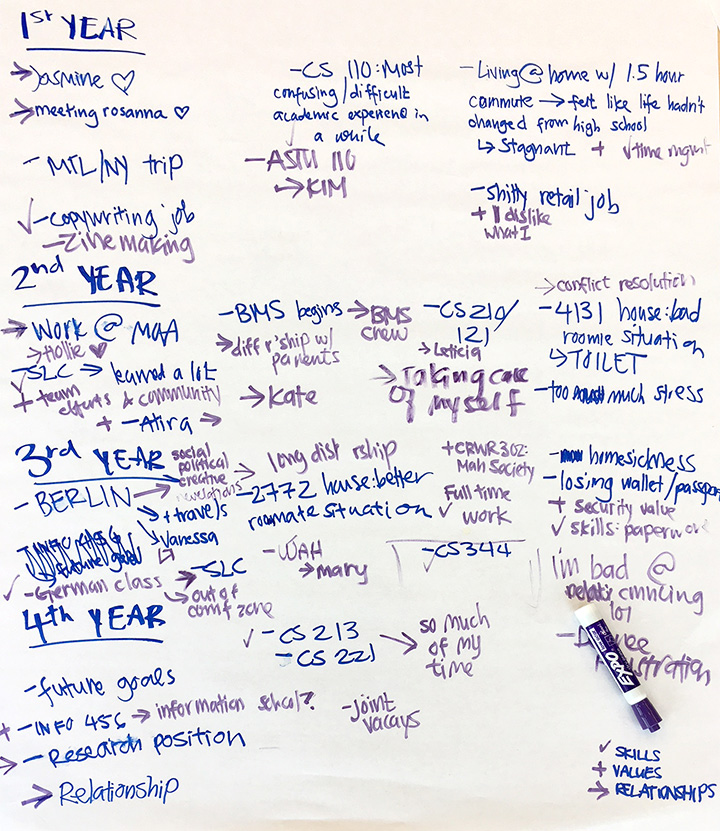 1ST YEAR
→ Jasmine ♡
→ meeting rosanna ♡
- MTL/NY trip
✓ - copywriting job
- Zine making
- CS 110: Most
confusing/difficult
academic experience in
a while
- ASTU 110
→ KIM
- Living @ home w/ 1.5 hour
commute → felt like life hadn't
changed from high school
↳ Stagnant + √ time mgmt
- shitty retail job
+ dislike
what I
2nd YEAR
→ Work @ MOA
→ Hollie ♥
✓ - SLC → learned a lot
+ team efforts & community
+ - Atira →
- BMS begins
→ diff r'ship w/
parents
→ Kate
→ BMS
crew
- CS 210/
121
→ Leticia
→ Taking care
of myself
→ conflict resolution
- 4131 house: bad
roomie situation
→ TOILET
- too much stress
3rd YEAR
- BERLIN →
social
political
creative
revelations
→ + travels
→ Vanessa
future goal
✓ - German class
→ - SLC
↳ out of
comf zone
→ long dist rship
- 2772 house: better
roommate situation
- WAH
→ mary
+ CRWR 302:
Mah Society
Full time
✓ work
✓ - CS344
- homesickness
- losing wallet/passport
+ security value
✓ skills: paperwork
I'm bad @
4th YEAR
- future goals
+ - INFO 456 → information school?
→ - Research position
→ Relationship
✓ - CS 213
- CS 221
→ so much
of my
time
- joint
vacays
EXPO
✓ SKILLS
+ VALUES
→ RELATIONSHIPS